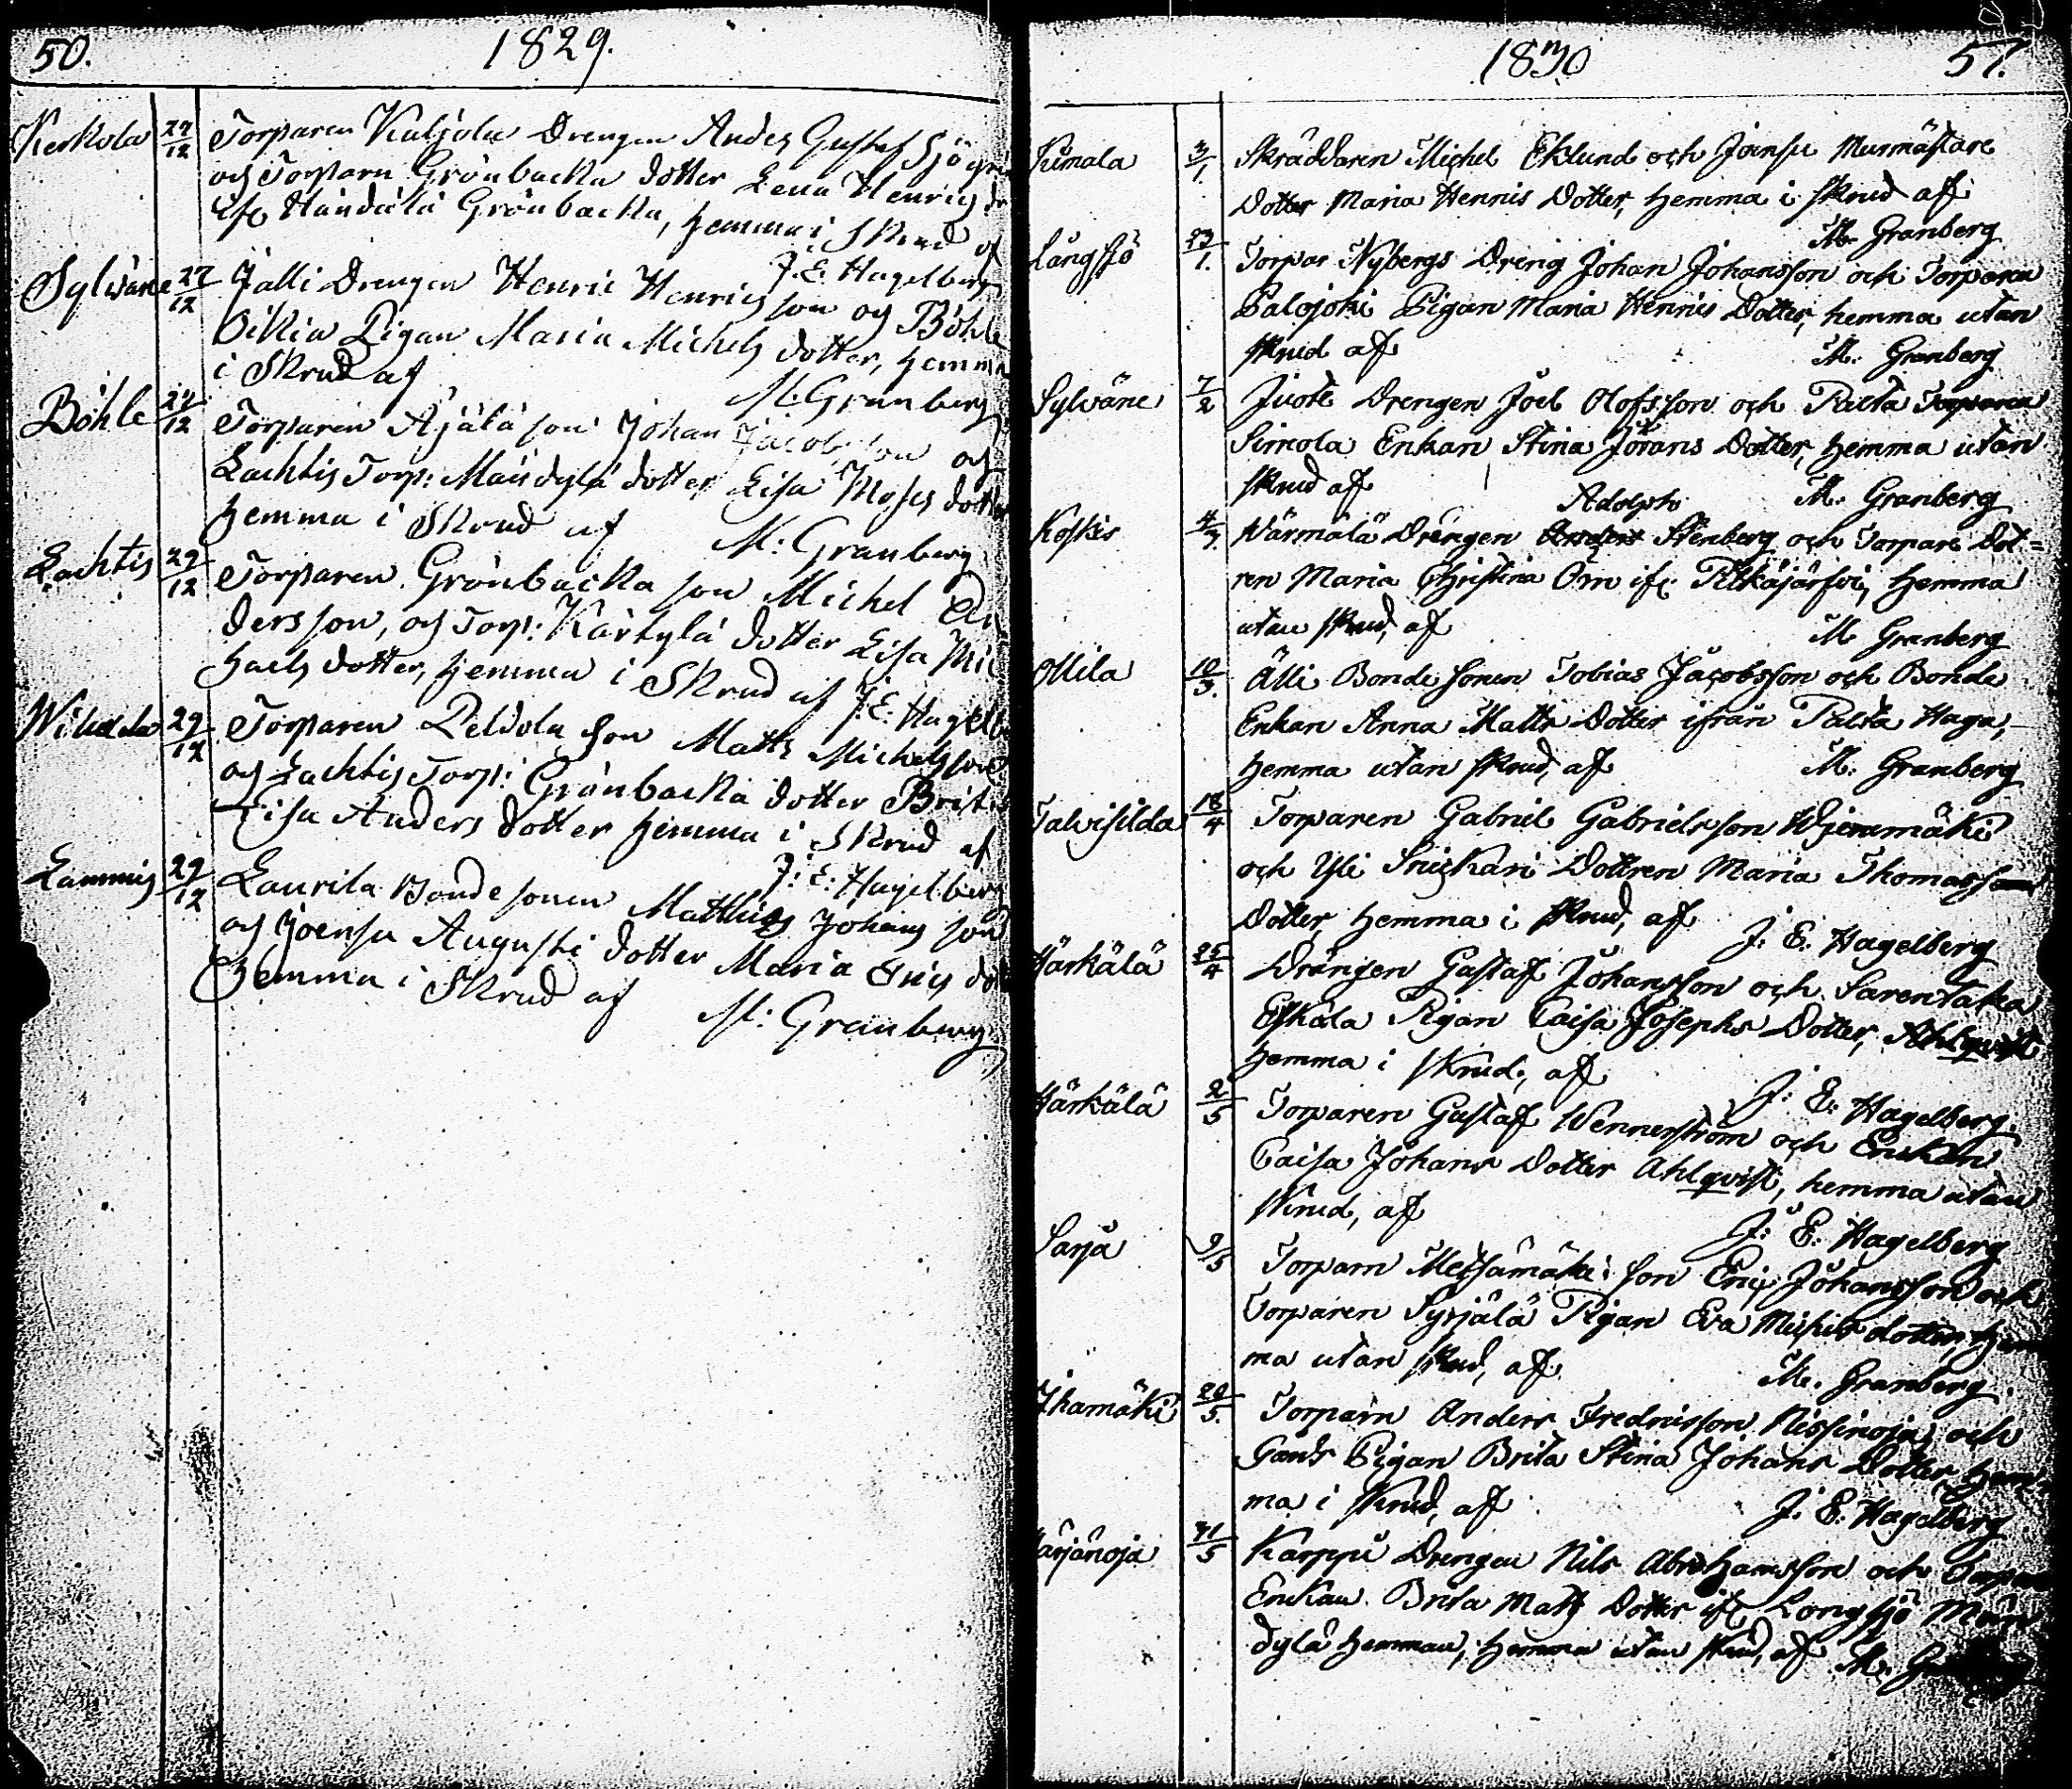 50. 1829.
Kerkola 27/12 Torparen Kaljola Drengen Anders Gustaf Sjögr
och Torparn Grönbacka dotter Lena Henrics
ifr. Grönbacka, hemma i Skrud af
J. E. Hagelberg
Sylväne 27/12 Jalli Drengen Henric Henricsson och Böhle
Oikia Pigan Maria Michels dotter, hemma
i Skrud af
M: Granberg
Böhle 27/12 Torparen Äjälä son Johan Jacobsson och
Lachtis Torp: Mändylä dotter Lisa Moses dotter
hemma i Skrud af M: Granberg
Lachtis 29/12 Torparen Grönbacka son Michel An
dersson, och Torp: Kärkylä dotter Lisa Mic
haels dotter, hemma i Skrud af J: E: Hagelbe
29/12 Torparen Peldola son Matts Michelsson
och Lachtis Torp: Grönbacka dotter Brita
Lisa Anders dotter hemma i Skrud af
J: E: Hagelberg
Lammis 29/12 Laurila Bonde sonen Matthias Johans son
och Joensu Augusti dotter Maria Erics dot
hemma i Skrud af M: Granberg
1830 51.
Jumala 3/1. Skräddaren Michel Eklund och Joensu Murmästare
Dotter Maria Henrics Dotter, hemma i skrud af
M. Granberg
Långsjö 23/1. Torpar Nybergs Dreng Johan Johansson och Torparen
Palojoki Pigan Maria Henrics Dotter, hemma utan
skrud af M: Granberg
Sylväne 7/2 Juote Drengen Joel Olofsson och Palta Torparen
Simola Enkan Stina Jörans Dotter, hemma utan
skrud af M: Granberg
Adolph
Koskis 4/3. Wärmälä Drengen Anders Stenberg och Torpare Dot=
ren Maria Christina Örn ifr: Pitkäjärfvi, hemma
utan skrud, af
M Granberg
Ollila 10/3. Älli Bonde sonen Tobias Jacobsson och Bonde
Enkan Anna Matts Dotter ifrån Palta Haga,
hemma utan skrud, af M: Granberg
Talvisilda 18/4 Torparen Gabriel Gabrielsson
och Yli Snickari Dottren Maria Thomas
Dotter, hemma i skrud, af J: E. Hagelberg
Härkälä 25/4 Drängen Gustaf Johansson och Sarentaka
Eskola Pigan Caisa Josephs Dotter, Ahlqvist
hemma i skrud, af
J: E: Hagelberg.
Härkälä 2/5 Torparen Gustaf Wennerström och Enkan
Caisa Johans Dotter Ahlqvist, hemma utan
skrud, af
J: E. Hagelberg
Sarja 9/5 Torparn Metsämäki son Eric Johansson och
Torparen Syrjälä Pigan Eva Michels dotter, hem
ma utan skrud, af
M. Granberg.
Ihamäki 20/5. Torparn Anders Fredricsson Nissinoja och
Pigan Brita Stina Johans Dotter, hem
ma i skrud, af J: E. Hagelberg
Härjänoja 31/5 Karppi Drengen Nils Abrahamsson och Torpar
Enkan Brita Matts Dotter ifr Longsjö Män
dylä hemman, hemma utan skrud, af M. Granberg